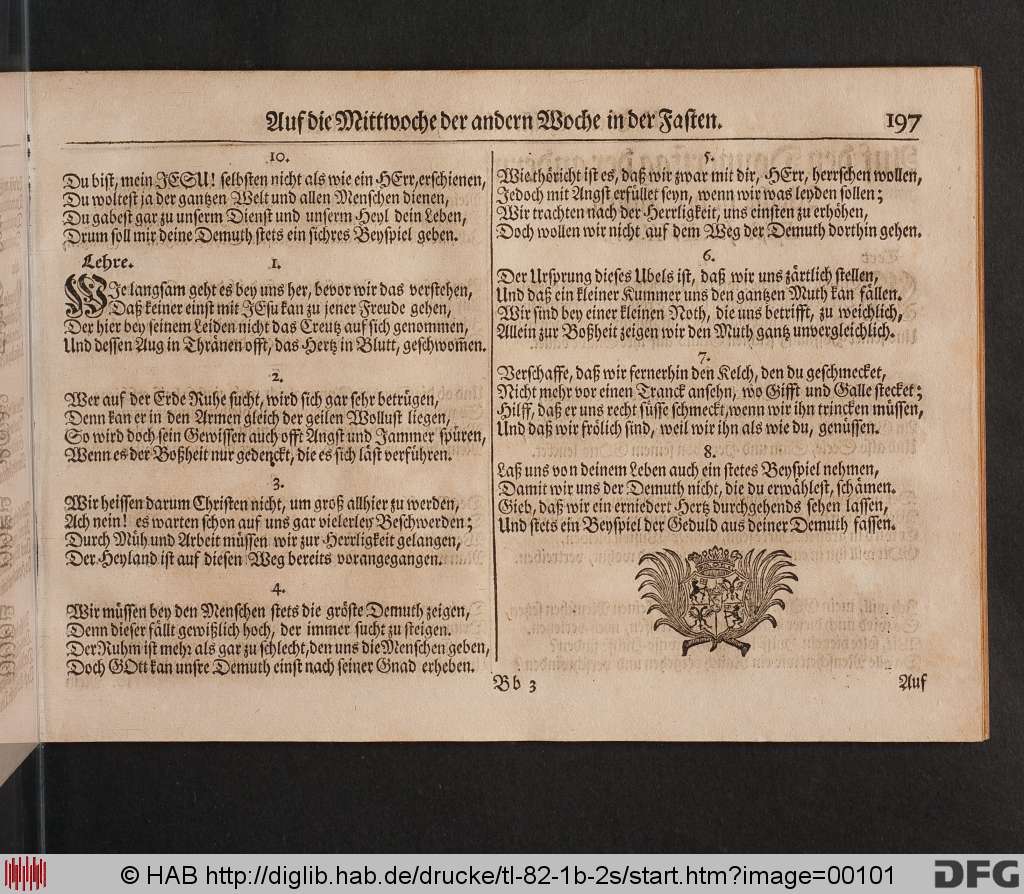 Auf die Mittwoche der andern Woche in der Fasten. 197
10.
Du bist, mein JESU! selbsten nicht als wie ein HErr, erschienen,
Du woltest ja der gantzen Welt und allen Menschen dienen,
Du gabest gar zu unserm Dienst und unserm Heyl dein Leben,
Drum soll mir deine Demuth stets ein sichres Beyspiel geben.
Lehre. 1.
WIe langsam geht es bey uns her, bevor wir das verstehen,
Daß keiner einst mit JEsu kan zu jener Freude gehen,
Der hier bey seinem Leiden nicht das Creutz auf sich genommen,
Und dessen Aug in Thränen offt, das Hertz in Blutt, geschwom̃en.
2.
Wer auf der Erde Ruhe sucht, wird sich gar sehr betrügen,
Denn kan er in den Armen gleich der geilen Wollust liegen,
So wird doch sein Gewissen auch offt Angst und Jammer spüren,
Wenn es der Boßheit nur gedenckt, die es sich läst verführen.
3.
Wir heissen darum Christen nicht, um groß allhier zu werden,
Ach nein! es warten schon auf uns gar vielerley Beschwerden;
Durch Müh und Arbeit müssen wir zur Herrligkeit gelangen,
Der Heyland ist auf diesen Weg bereits vorangegangen.
4.
Wir müssen bey den Menschen stets die gröste Demuth zeigen,
Denn dieser fällt gewißlich hoch, der immer sucht zu steigen.
Der Ruhm ist mehr als gar zu schlecht, den uns die Menschen geben,
Doch GOtt kan unsre Demuth einst nach seiner Gnad erheben.
5.
Wie thöricht ist es, daß wir zwar mit dir, HErr, herrschen wollen,
Jedoch mit Angst erfüllet seyn, wenn wir was leyden sollen;
Wir trachten nach der Herrligkeit, uns einsten zu erhöhen,
Doch wollen wir nicht auf dem Weg der Demuth dorthin gehen.
6.
Der Ursprung dieses Ubels ist, daß wir uns zärtlich stellen,
Und daß ein kleiner Kummer uns den gantzen Muth kan fällen.
Wir sind bey einer kleinen Noth, die uns betrifft, zu weichlich,
Allein zur Boßheit zeigen wir den Muth gantz unvergleichlich.
7.
Verschaffe, daß wir fernerhin den Kelch, den du geschmecket,
Nicht mehr vor einen Tranck ansehn, wo Gifft und Galle stecket;
Hilff, daß er uns recht süsse schmeckt, wenn wir ihn trincken müssen,
Und daß wir frölich sind, weil wir ihn als wie du, genüssen.
8.
Laß uns von deinem Leben auch ein stetes Beyspiel nehmen,
Damit wir uns der Demuth nicht, die du erwählest, schämen.
Gieb, daß wir ein erniedert Hertz durchgehends sehen lassen,
Und stets ein Beyspiel der Geduld aus deiner Demuth fassen.
Bb 3 Auf
© HAB http://diglib.hab.de/drucke/tl-82-1b-2s/start.htm?image=00101
DFG